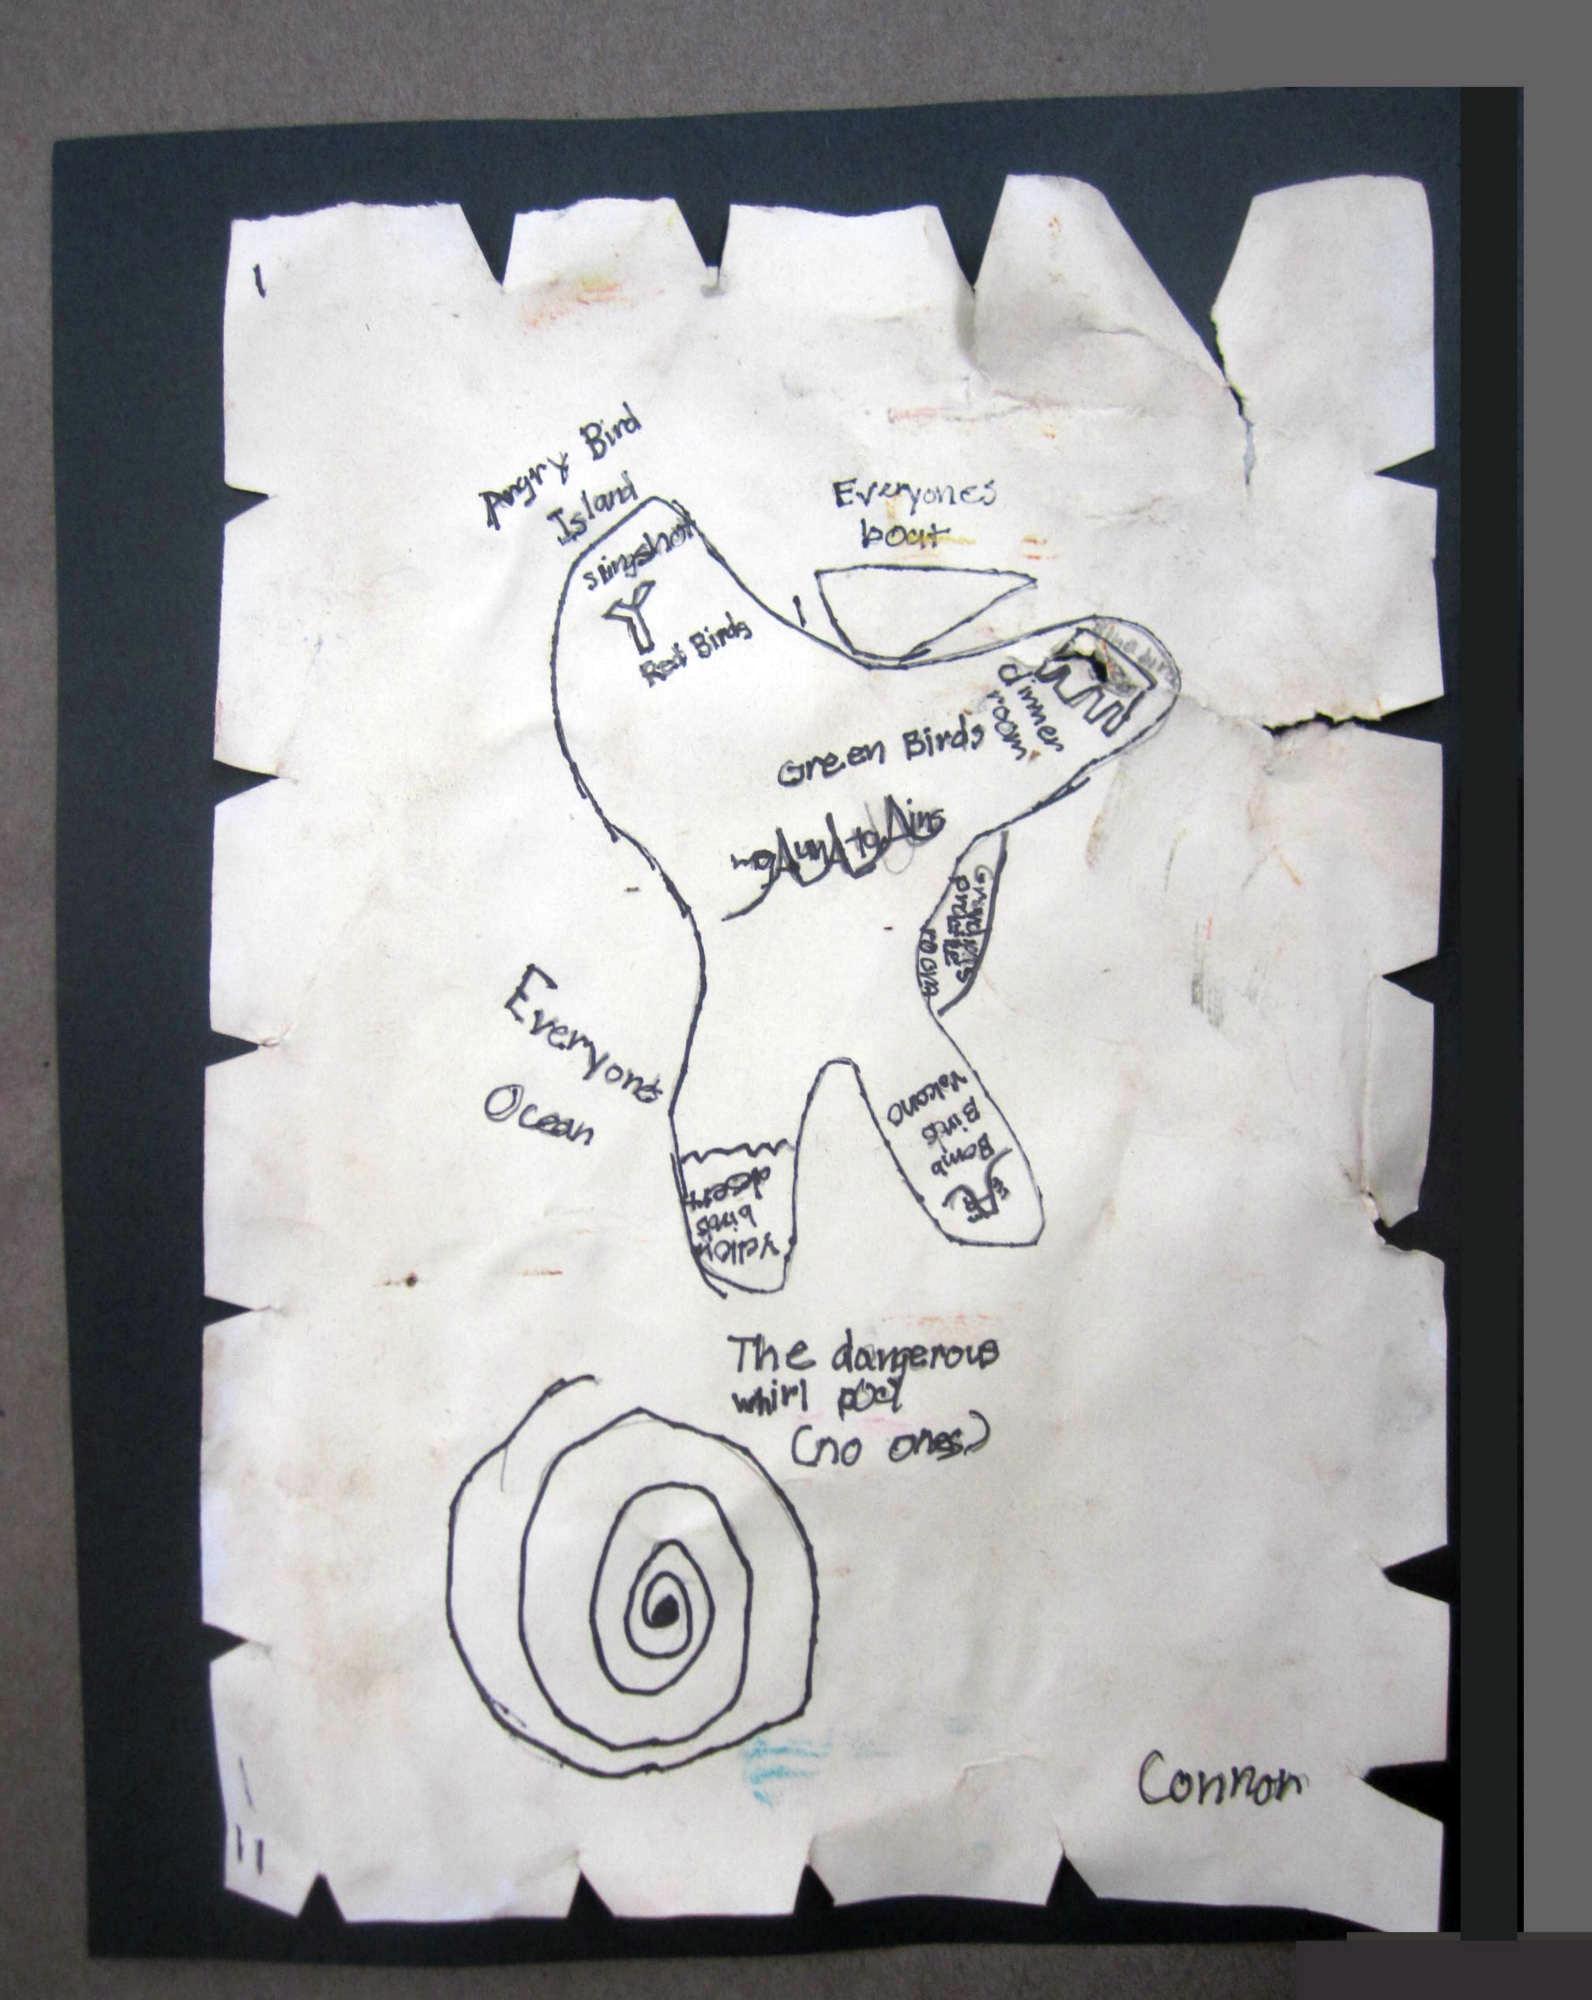 Angry Bird
Island
Everyones
boat
slingshot
Red Birds
dinner
room
Green Birds
mountains
room
Everyons
Ocean
Volcano
Birds
Bomb
desert
birds
yellow
The dangerous
whirl pool
(no ones)
Connor